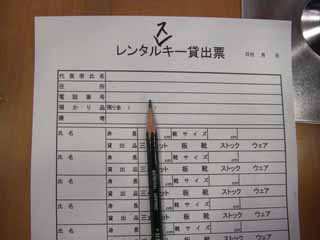 ス
レンタルキー貸出票 H 年 月 日
代表者氏名
住所
電話番号
預かり品 預り金(
備考
氏名 身長 cm 靴サイズ cm
貸出品 三点セット 板 靴 ストック ウェア
氏名 身長 cm 靴サイズ cm
貸出品 三点セット 板 靴 ストック ウェア
氏名 身長 cm 靴サイズ cm
貸出品 三点セット 板 靴 ストック ウェア
氏名 身長 cm 靴サイズ cm
貸出品 三点セット 板 靴 ストック ウェア
氏名 身長 靴サイズ